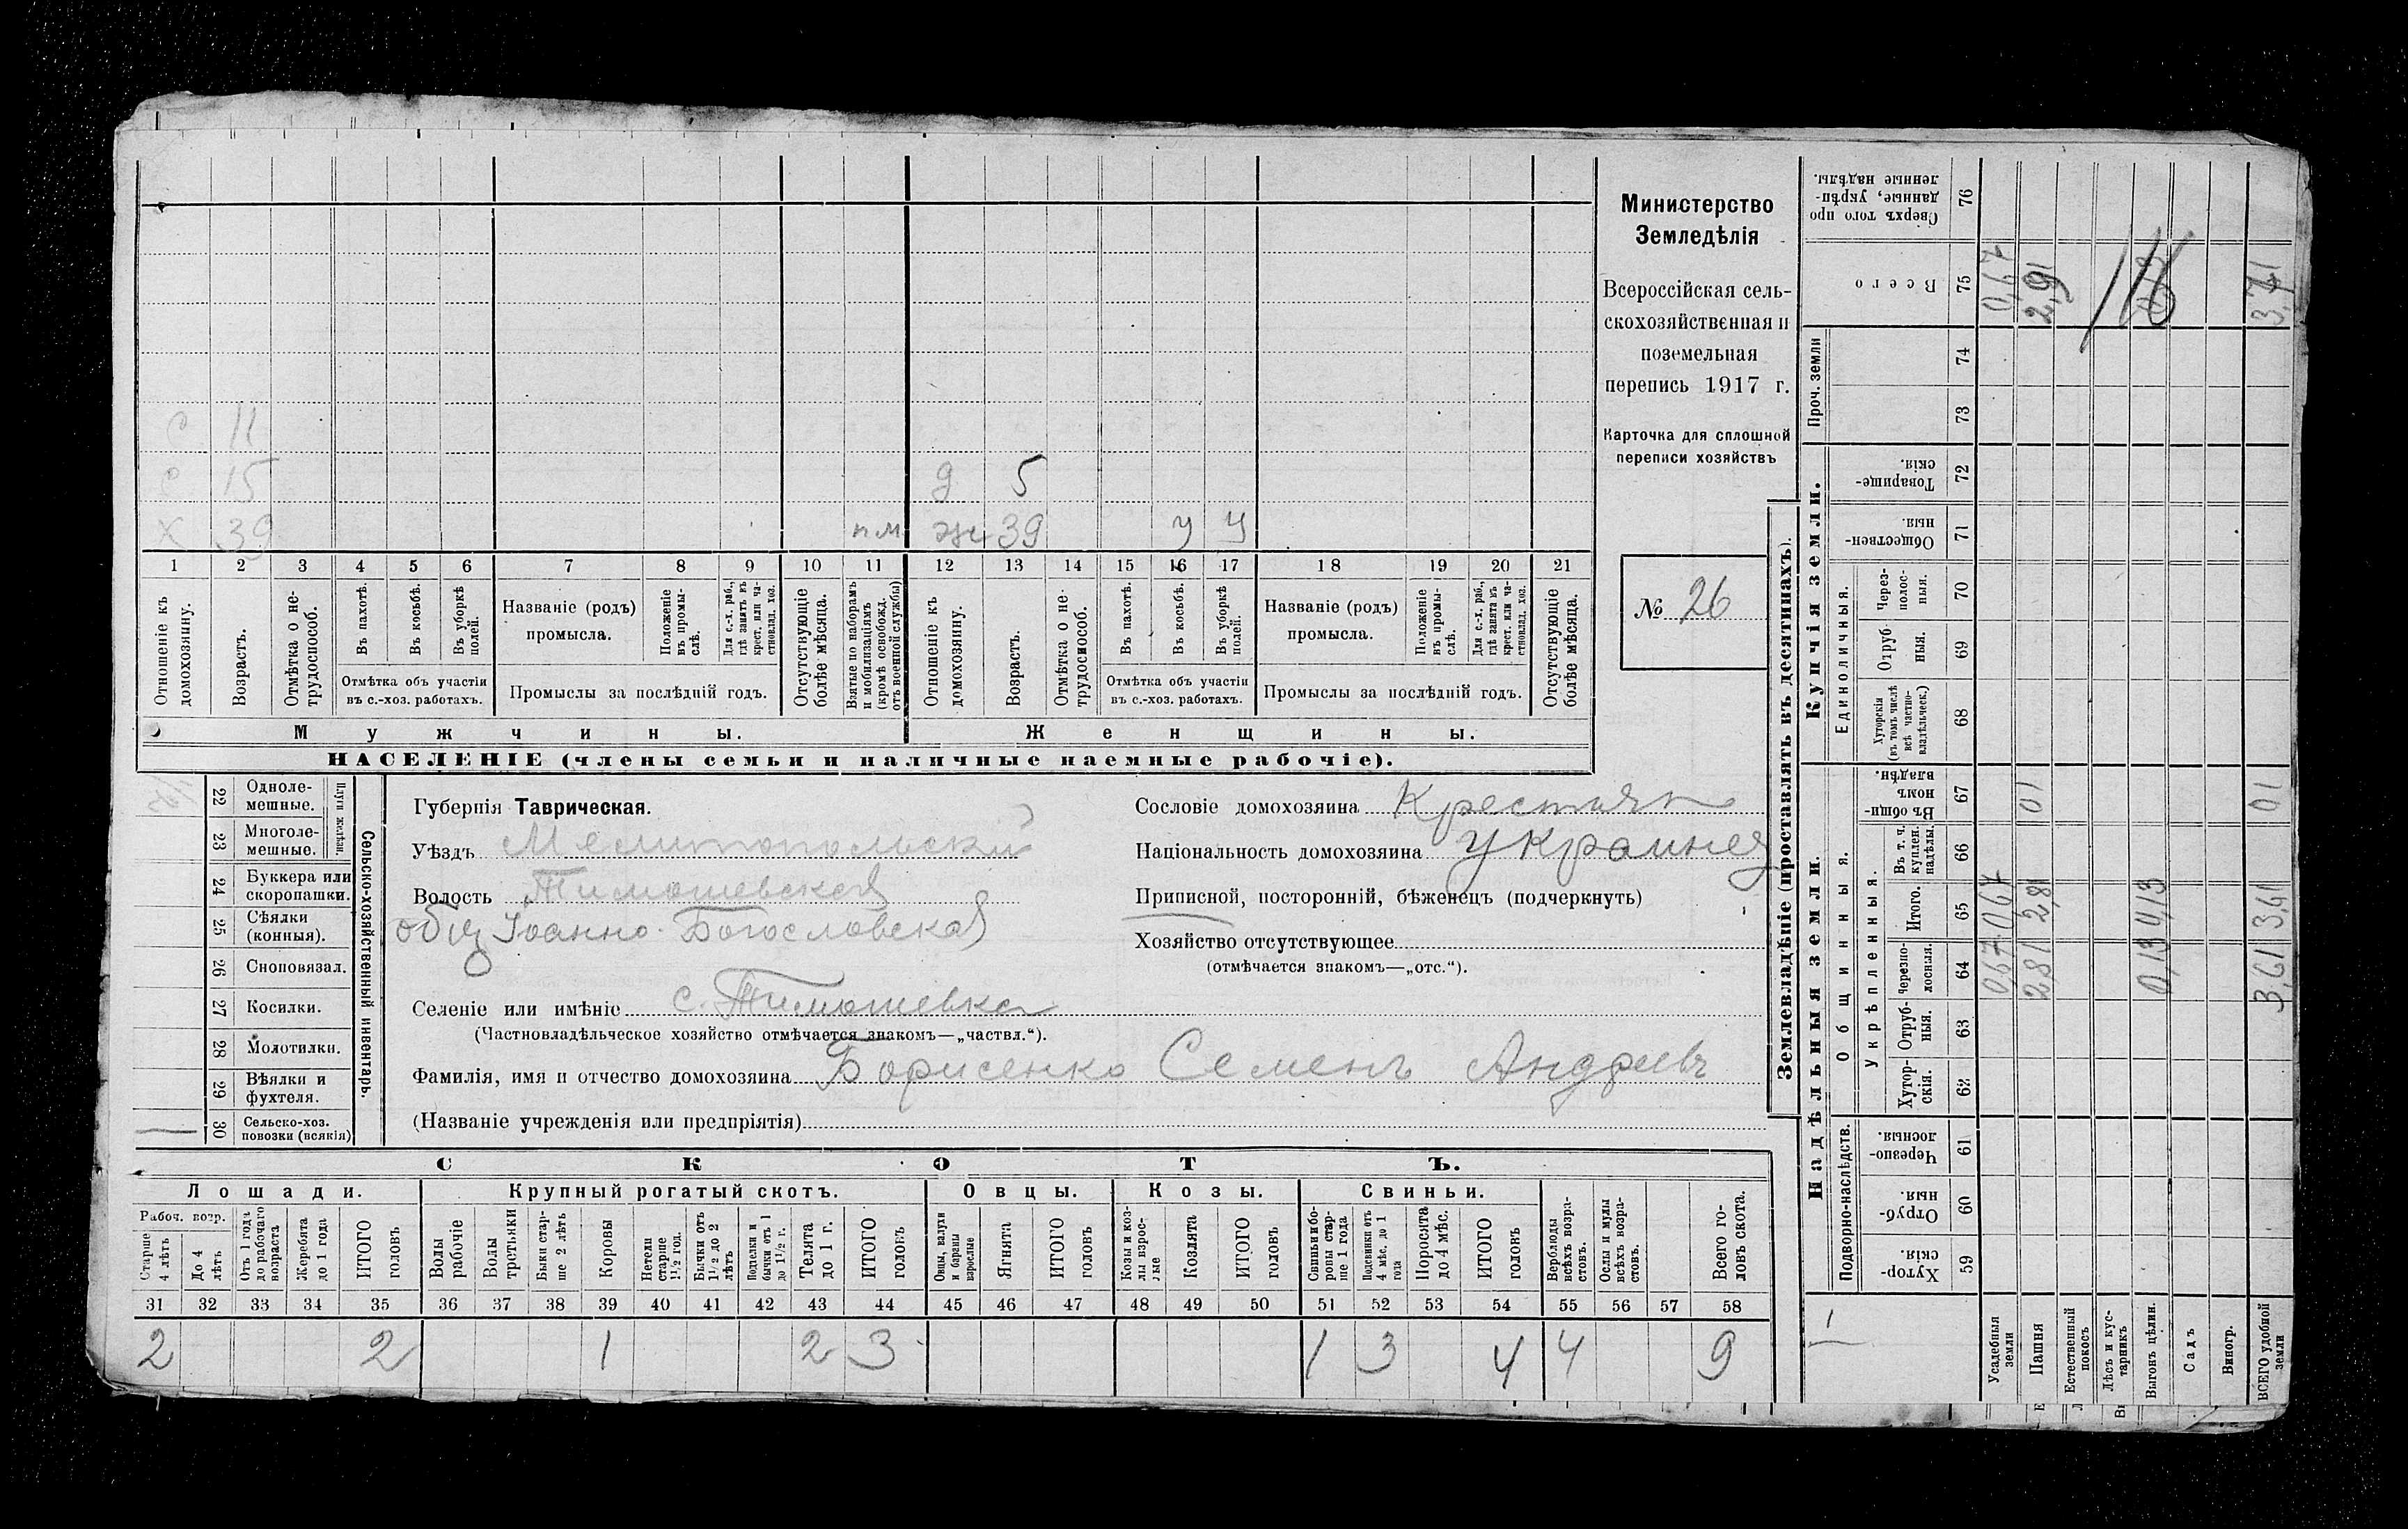 с 11
с 15 д 5
х 39 пм ж 39 у у
1 2 3 4 5 6 7 8 9 10 11 12 13 14 15 16 17 18 19 20 21
Отношеніе къ домохозяину.
Возрастъ.
Отмѣтка о не-трудоспособ.
Въ пахотѣ.
Въ косьбѣ.
Въ уборкѣ полей.
Отмѣтка объ участіи
въ с.-хоз. работахъ.
Названіе (родъ)
промысла.
Положеніе въ промы-слѣ.
Для с.-х. раб., гдѣ занятъ въ крест. или ча-стновлад. хоз.
Промыслы за послѣдній годъ.
Отсутствующіе болѣе мѣсяца.
Взятые по наборамъ и мобилизаціямъ (кромѣ освобожд. отъ военной службы)
Отношеніе къ домохозяину.
Возрастъ.
Отмѣтка о не-трудоспособ.
Въ пахотѣ.
Въ косьбѣ.
Въ уборкѣ полей.
Отмѣтка объ участіи
въ с.-хоз. работахъ.
Названіе (родъ)
промысла.
Положеніе въ промы-слѣ.
Для с.-х. раб., гдѣ занята въ крест. или ча-стновлад. хоз.
Промыслы за послѣдній годъ.
Отсутствующіе болѣе мѣсяца.
Мужчины. Женщины.
НАСЕЛЕНІЕ (члены семьи и наличные наемные рабочіе).
Министерство
Земледѣлія
Всероссійская сель-
скохозяйственная и
поземельная
перепись 1917 г.
Карточка для сплошной
переписи хозяйствъ
№ 26
22 Одноле-мешные.
23 Многоле-мешные.
Плуги желѣзн.
24 Буккера или скоропашки.
25 Сѣялки (конныя).
26 Сноповязал.
27 Косилки.
28 Молотилки.
29 Вѣялки и фухтеля.
30 Сельско-хоз. повозки (всякія)
Сельско-хозяйственный инвентарь.
Губернія Таврическая.
Уѣздъ Мелитопольскій
Волость Тимошевская
общ Іоанно-Богословская
Селеніе или имѣніе с. Тимошевка
(Частновладѣльческое хозяйство отмѣчается знакомъ—„частвл.“).
Фамилія, имя и отчество домохозяина Борисенко Семенъ Андреевъ
(Названіе учрежденія или предпріятія)
Сословіе домохозяина Крестьян
Національность домохозяина украинец
Приписной, посторонній, бѣженецъ (подчеркнуть)
Хозяйство отсутствующее
(отмѣчается знакомъ—„отс.“).
СКОТЪ.
Лошади. Крупный рогатый скотъ. Овцы. Козы. Свиньи.
Рабоч. возр.
Старше 4 лѣтъ
До 4 лѣтъ
Отъ 1 года до рабочаго возраста
Жеребята до 1 года
ИТОГО головъ
Волы рабочіе
Волы третьяки
Быки стар-ше 2 лѣтъ
Коровы
Нетели старше 1½ год.
Бычки отъ 1½ до 2 лѣтъ
Подтелки и бычки отъ 1 до 1½ г.
Телята до 1 г.
ИТОГО головъ
Овцы, валухи и бараны взрослые
Ягнята
ИТОГО головъ
Козы и коз-лы взрос-лые
Козлята
ИТОГО головъ
Свиньи и бо-ровы стар-ше 1 года
Подсвинки отъ 4 мѣс. до 1 года
Поросята до 4 мѣс.
ИТОГО головъ
Верблюды всѣхъ возра-стовъ.
Ослы и мулы всѣхъ возра-стовъ.
Всего го-ловъ скота.
31 32 33 34 35 36 37 38 39 40 41 42 43 44 45 46 47 48 49 50 51 52 53 54 55 56 57 58
2 2 1 2 3 1 3 4 4 9
Землевладѣніе (проставлять въ десятинахъ).
Надѣльныя земли. Купчія земли.
Проч. земли
Подворно-наслѣдств.
Общинныя.
Укрѣпленныя.
Единоличныя.
Сверхъ того про-данные, укрѣп-ленные надѣлы. 76
Всего 75 0,67 2,91 3,71
74
73
Товарище-скія. 72
Обществен-ныя. 71
Через-полос-ныя. 70
Отруб-ныя. 69
Хуторскія (въ томъ числѣ всѣ частно-владѣльческ.) 68
Въ общин-номъ владѣн. 67 01 01
Въ т. ч. куплен. надѣлы. 66
Итого. 65 0,67 2,81 0,13 3,61
Черезпо-лосныя. 64 0,67 2,81 0,13 3,61
Отруб-ныя. 63
Хутор-скія. 62
Черезпо-лосныя. 61
Отруб-ныя. 60
Хутор-скія. 59
1
Усадебныя земли
Пашня
Естественный покосъ
Лѣсъ и кус-тарникъ
Выгонъ цѣлин.
Садъ
Виногр.
ВСЕГО удобной земли